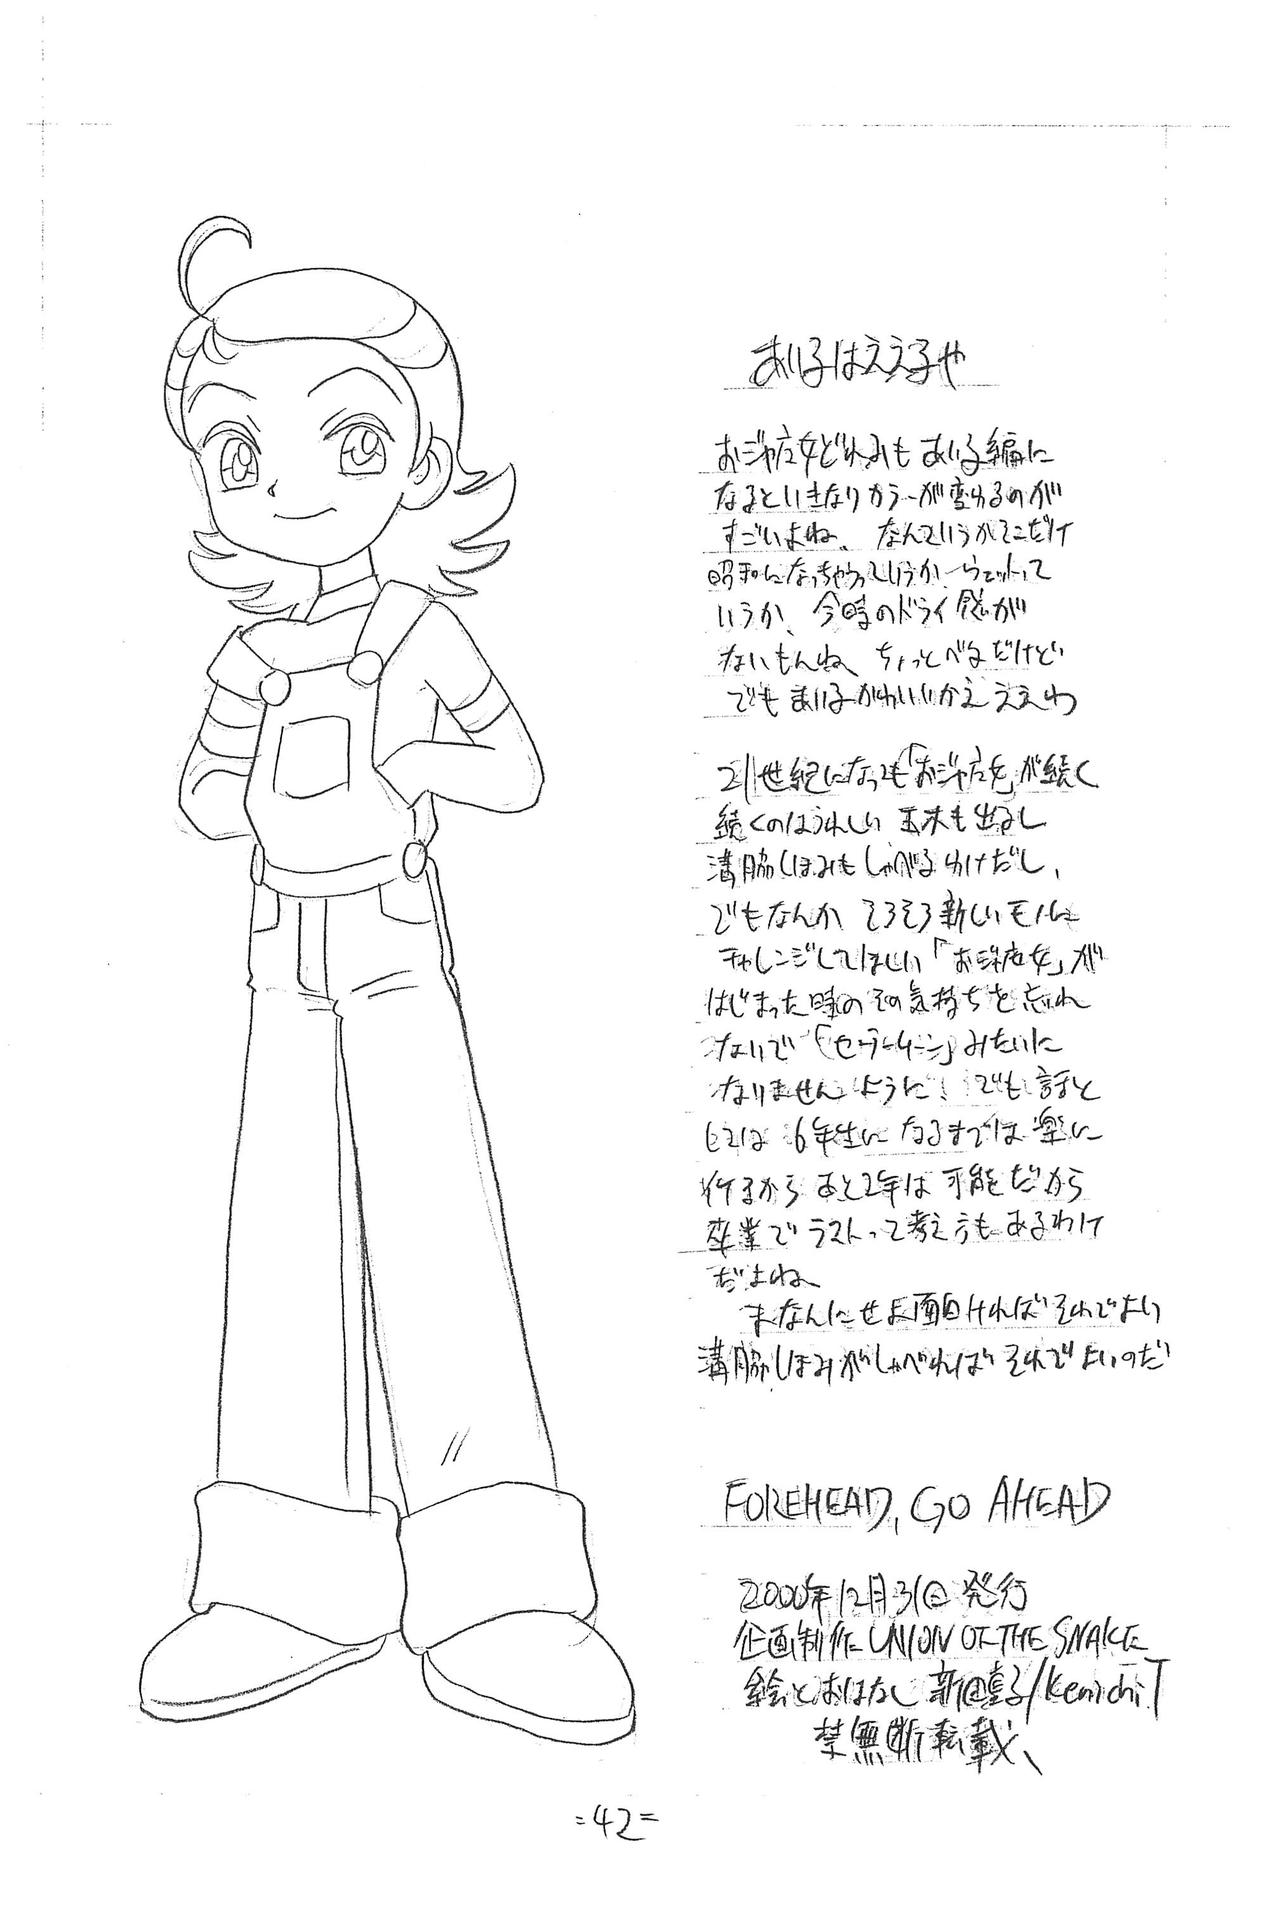 あいるはええるや
おジャ魔女どれみも あいる編に
なるといきなりカラーが変わるのが
すごいよね、なんていうかそこだけ
昭和になっちゃうっていうか ウェットって
いうか、今時のドライ感が
ないもんね ちょっとベタだけど
でも あいるかわいいから ええわ
21世紀になっても「おジャ魔女」が続く
続くのはうれしい 玉木も出るし
溝脇しほみもしゃべるわけだし、
でもなんか そろそろ新しいモノに
チャレンジしてほしい「おジャ魔女」が
はじまった時のその気持ちを忘れ
ないで「セーラームーン」みたいに
なりませんように! でも 話と
しては 6年生になるまでは 楽に
行けるから あと2年は 可能だから
卒業でラストって考え方も あるわけ
だよね
まなんにせよ面白ければそれでよい
溝脇しほみがしゃべればそれでよいのだ
FOREHEAD, GO AHEAD
2000年12月31日 発行
企画制作 UNION OF THE SNAKE
絵とおはなし 新田真子/Kenichi.T
禁無断転載、
=42=